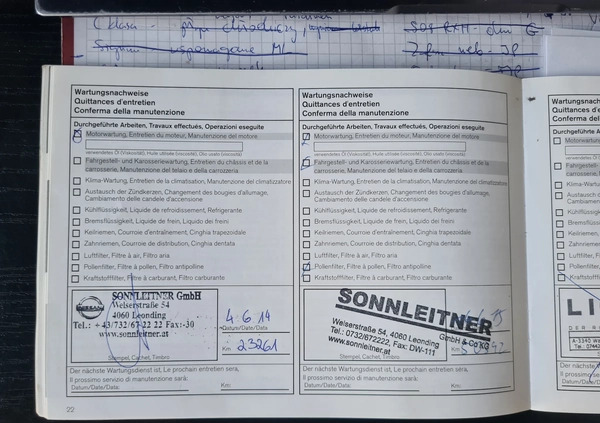 Wartungsnachweise
Quittances d'entretien
Conferma della manutenzione
Durchgeführte Arbeiten, Travaux effectués, Operazioni eseguite
Motorwartung, Entretien du moteur, Manutenzione del motore
verwendetes Öl (Viskosität), Huile utilisée (viscosité), Olio usato (viscosità)
Fahrgestell- und Karosseriewartung, Entretien du châssis et de la
carrosserie, Manutenzione del telaio e della carrozzeria
Klima-Wartung, Entretien de la climatisation, Manutenzione del climatizzatore
Austausch der Zündkerzen, Changement des bougies d'allumage,
Cambiamento delle candele d'accensione
Kühlflüssigkeit, Liquide de refroidissement, Refrigerante
Bremsflüssigkeit, Liquide de frein, Liquido dei freini
Keilriemen, Courroie d'entraînement, Cinghia trapezoidale
Zahnriemen, Courroie de distribution, Cinghia dentata
Luftfilter, Filtre à air, Filtro aria
Pollenfilter, Filtre à pollen, Filtro antipolline
Kraftstofffilter, Filtre à carburant, Filtro carburante
NISSAN
SONNLEITNER GmbH
Welserstraße 54
4060 Leonding
Tel.: +43/732/67 22 22 Fax:-30
www.sonnleitner.at
Stempel, Cachet, Timbro
4.6.14
Datum/Date/Data:
Km: 23261
Der nächste Wartungsdienst ist, Le prochain entretien sera,
Il prossimo servizio di manutenzione sarà:
Datum/Date/Data: Km:
22
Wartungsnachweise
Quittances d'entretien
Conferma della manutenzione
Durchgeführte Arbeiten, Travaux effectués, Operazioni eseguite
Motorwartung, Entretien du moteur, Manutenzione del motore
verwendetes Öl (Viskosität), Huile utilisée (viscosité), Olio usato (viscosità)
Fahrgestell- und Karosseriewartung, Entretien du châssis et de la
carrosserie, Manutenzione del telaio e della carrozzeria
Klima-Wartung, Entretien de la climatisation, Manutenzione del climatizzatore
Austausch der Zündkerzen, Changement des bougies d'allumage,
Cambiamento delle candele d'accensione
Kühlflüssigkeit, Liquide de refroidissement, Refrigerante
Bremsflüssigkeit, Liquide de frein, Liquido dei freini
Keilriemen, Courroie d'entraînement, Cinghia trapezoidale
Zahnriemen, Courroie de distribution, Cinghia dentata
Luftfilter, Filtre à air, Filtro aria
Pollenfilter, Filtre à pollen, Filtro antipolline
Kraftstofffilter, Filtre à carburant, Filtro carburante
SONNLEITNER
GmbH & Co KG
Welserstraße 54, 4060 Leonding
Tel.: 0732/672222, Fax: DW-111
www.sonnleitner.at
Stempel, Cachet, Timbro
Datum/Date/Data:
Km:
Der nächste Wartungsdienst ist, Le prochain entretien sera,
Il prossimo servizio di manutenzione sarà:
Datum/Date/Data: Km: